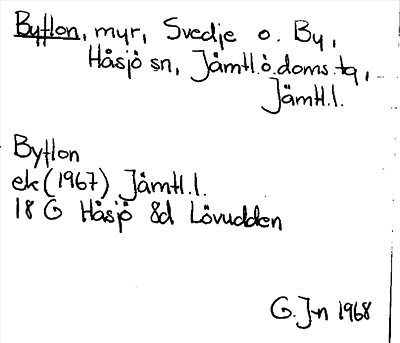 Byflon, myr, Svedje o. By,
Håsjö sn, Jämtl.ö.doms.tg,
Jämtl.l.
Byflon
ek (1967) Jämtl.l.
18 G Håsjö 8d Lövudden
G. J-n 1968